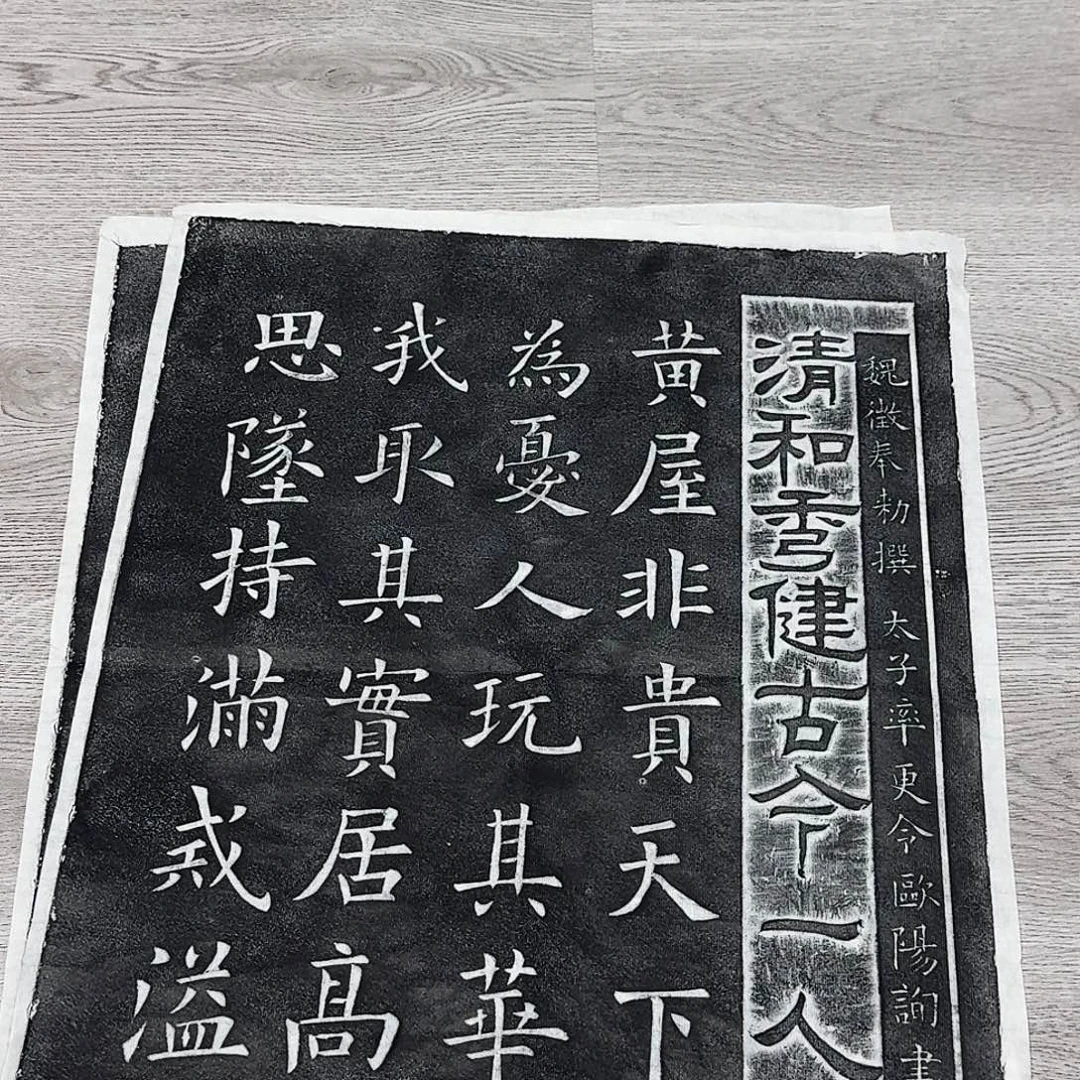 魏徵奉勑撰 太子率更令歐陽詢書
清和秀健古今一人
黃屋非貴天下
為憂人玩其華
我取其實居高
思墜持滿戒溢